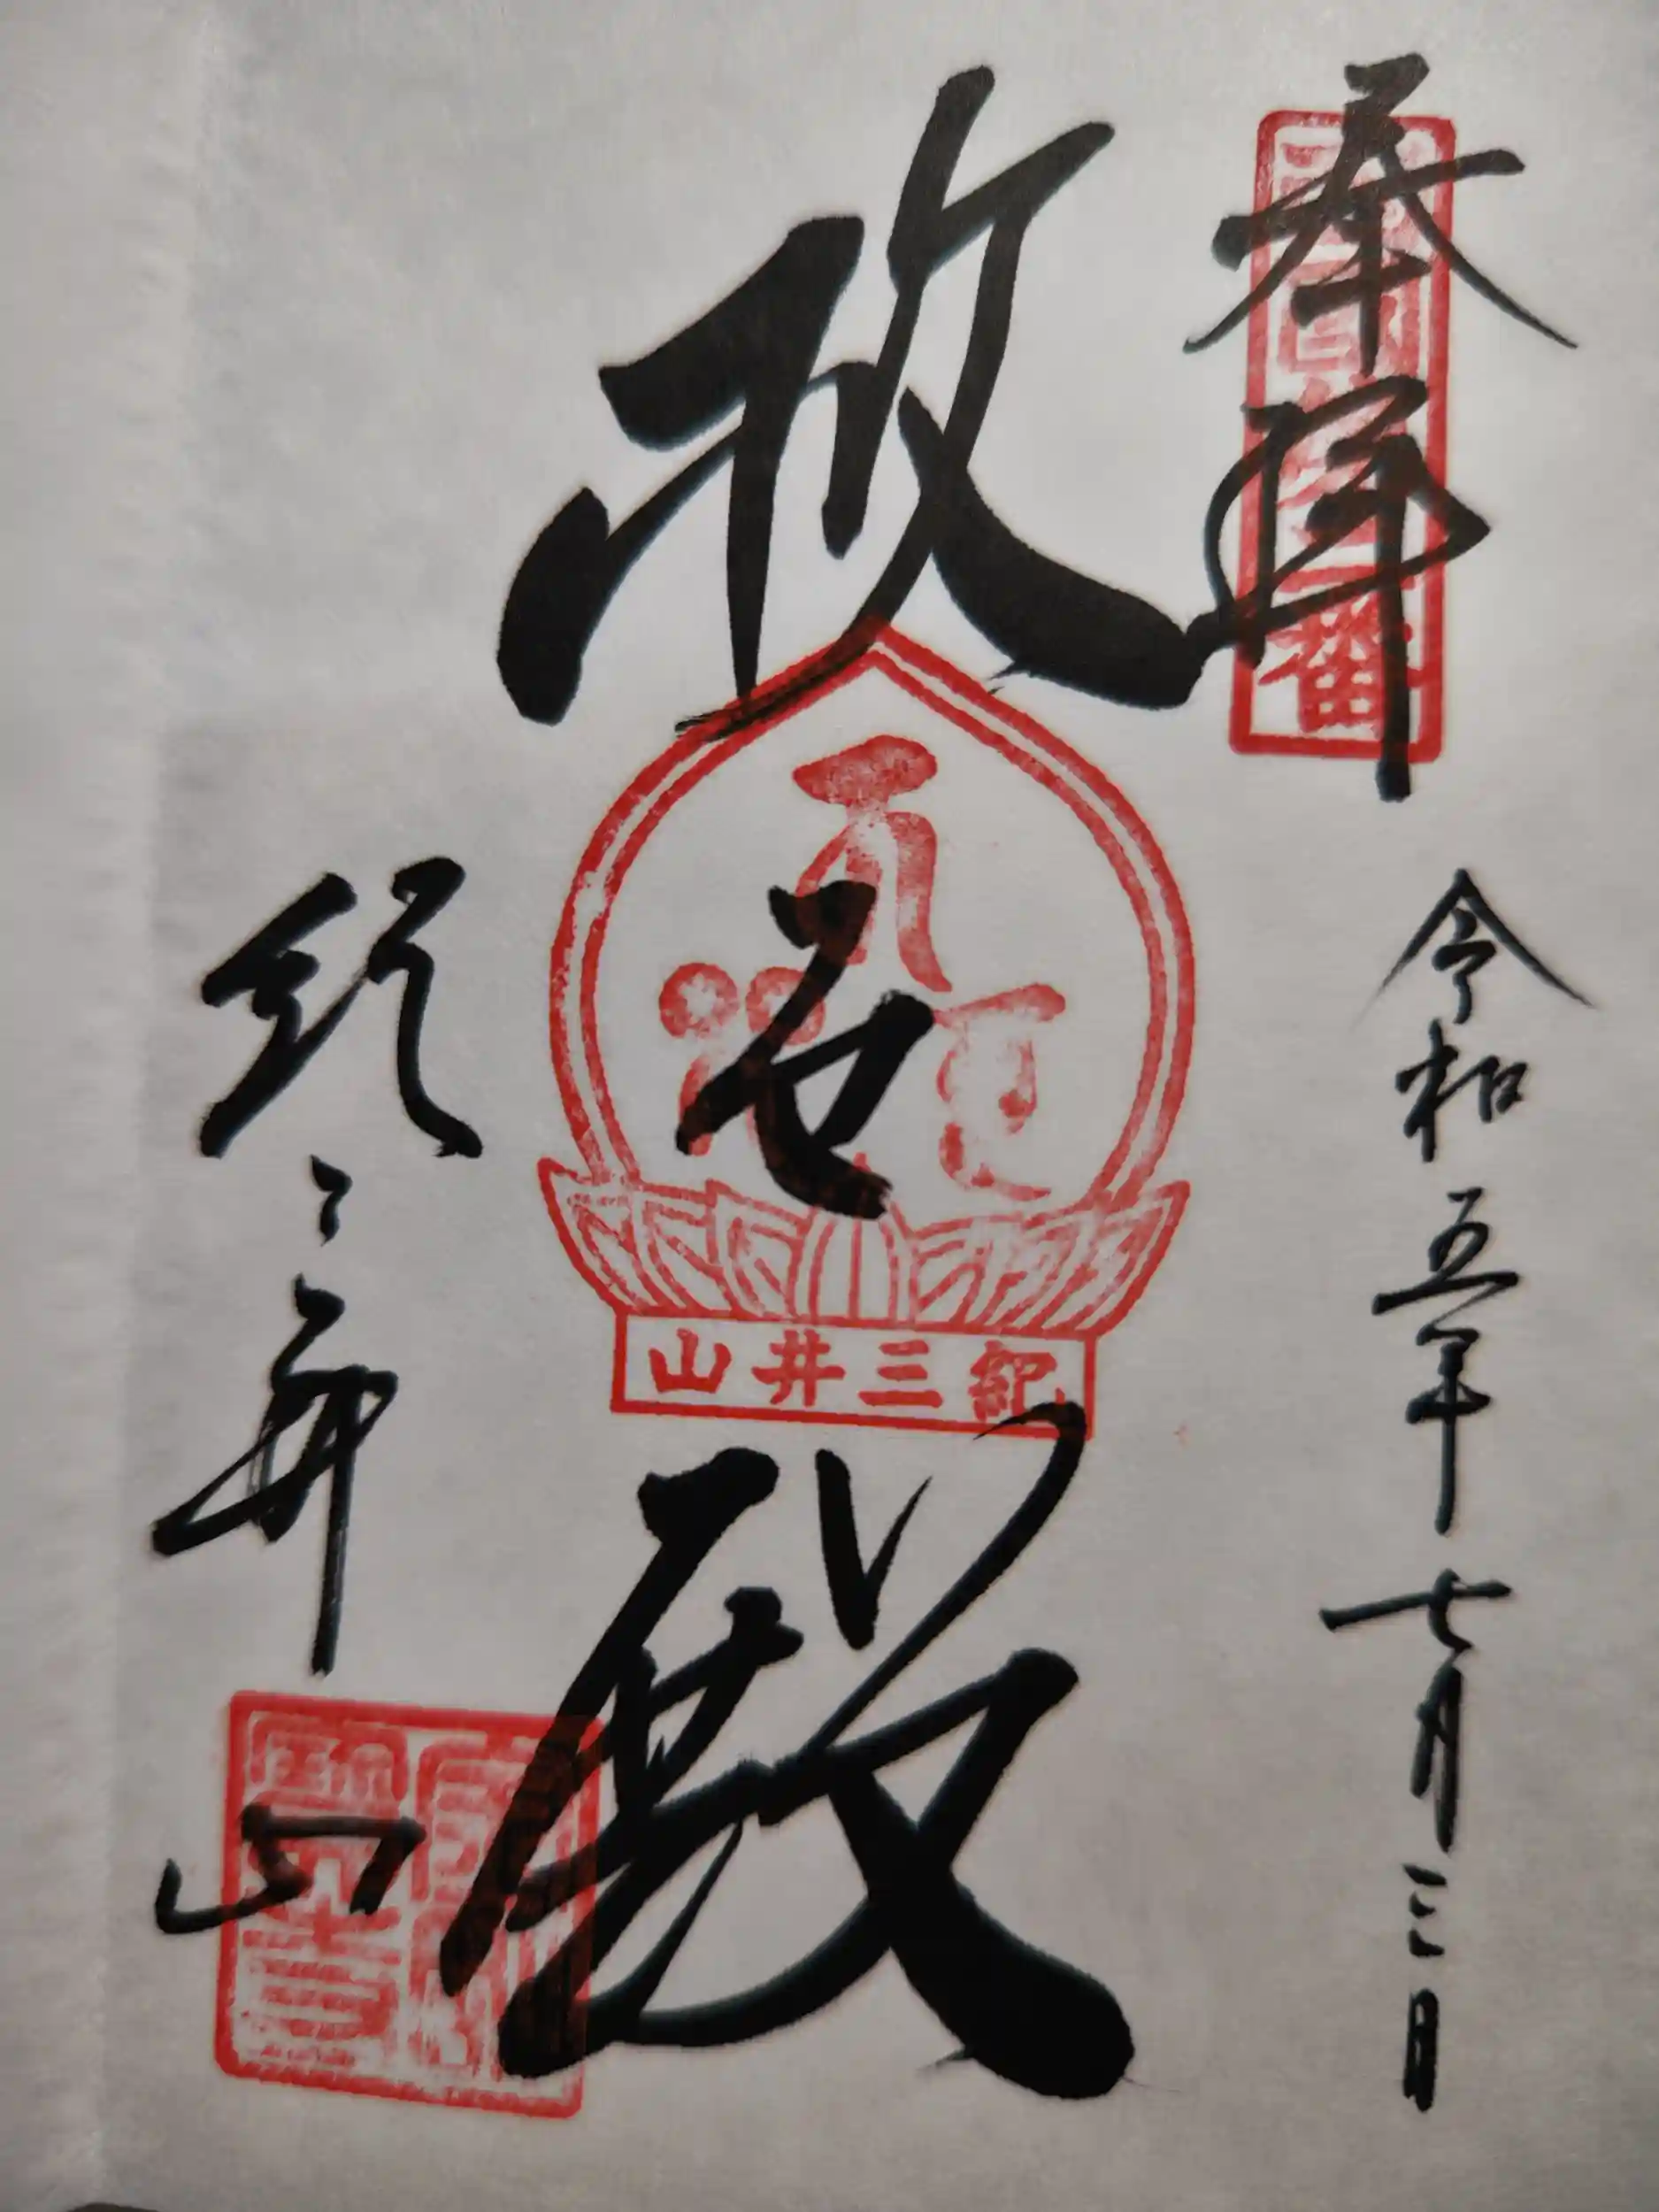 奉拝
西国第二番
令和五年七月三日
救世殿
紀三井山
紀三井山